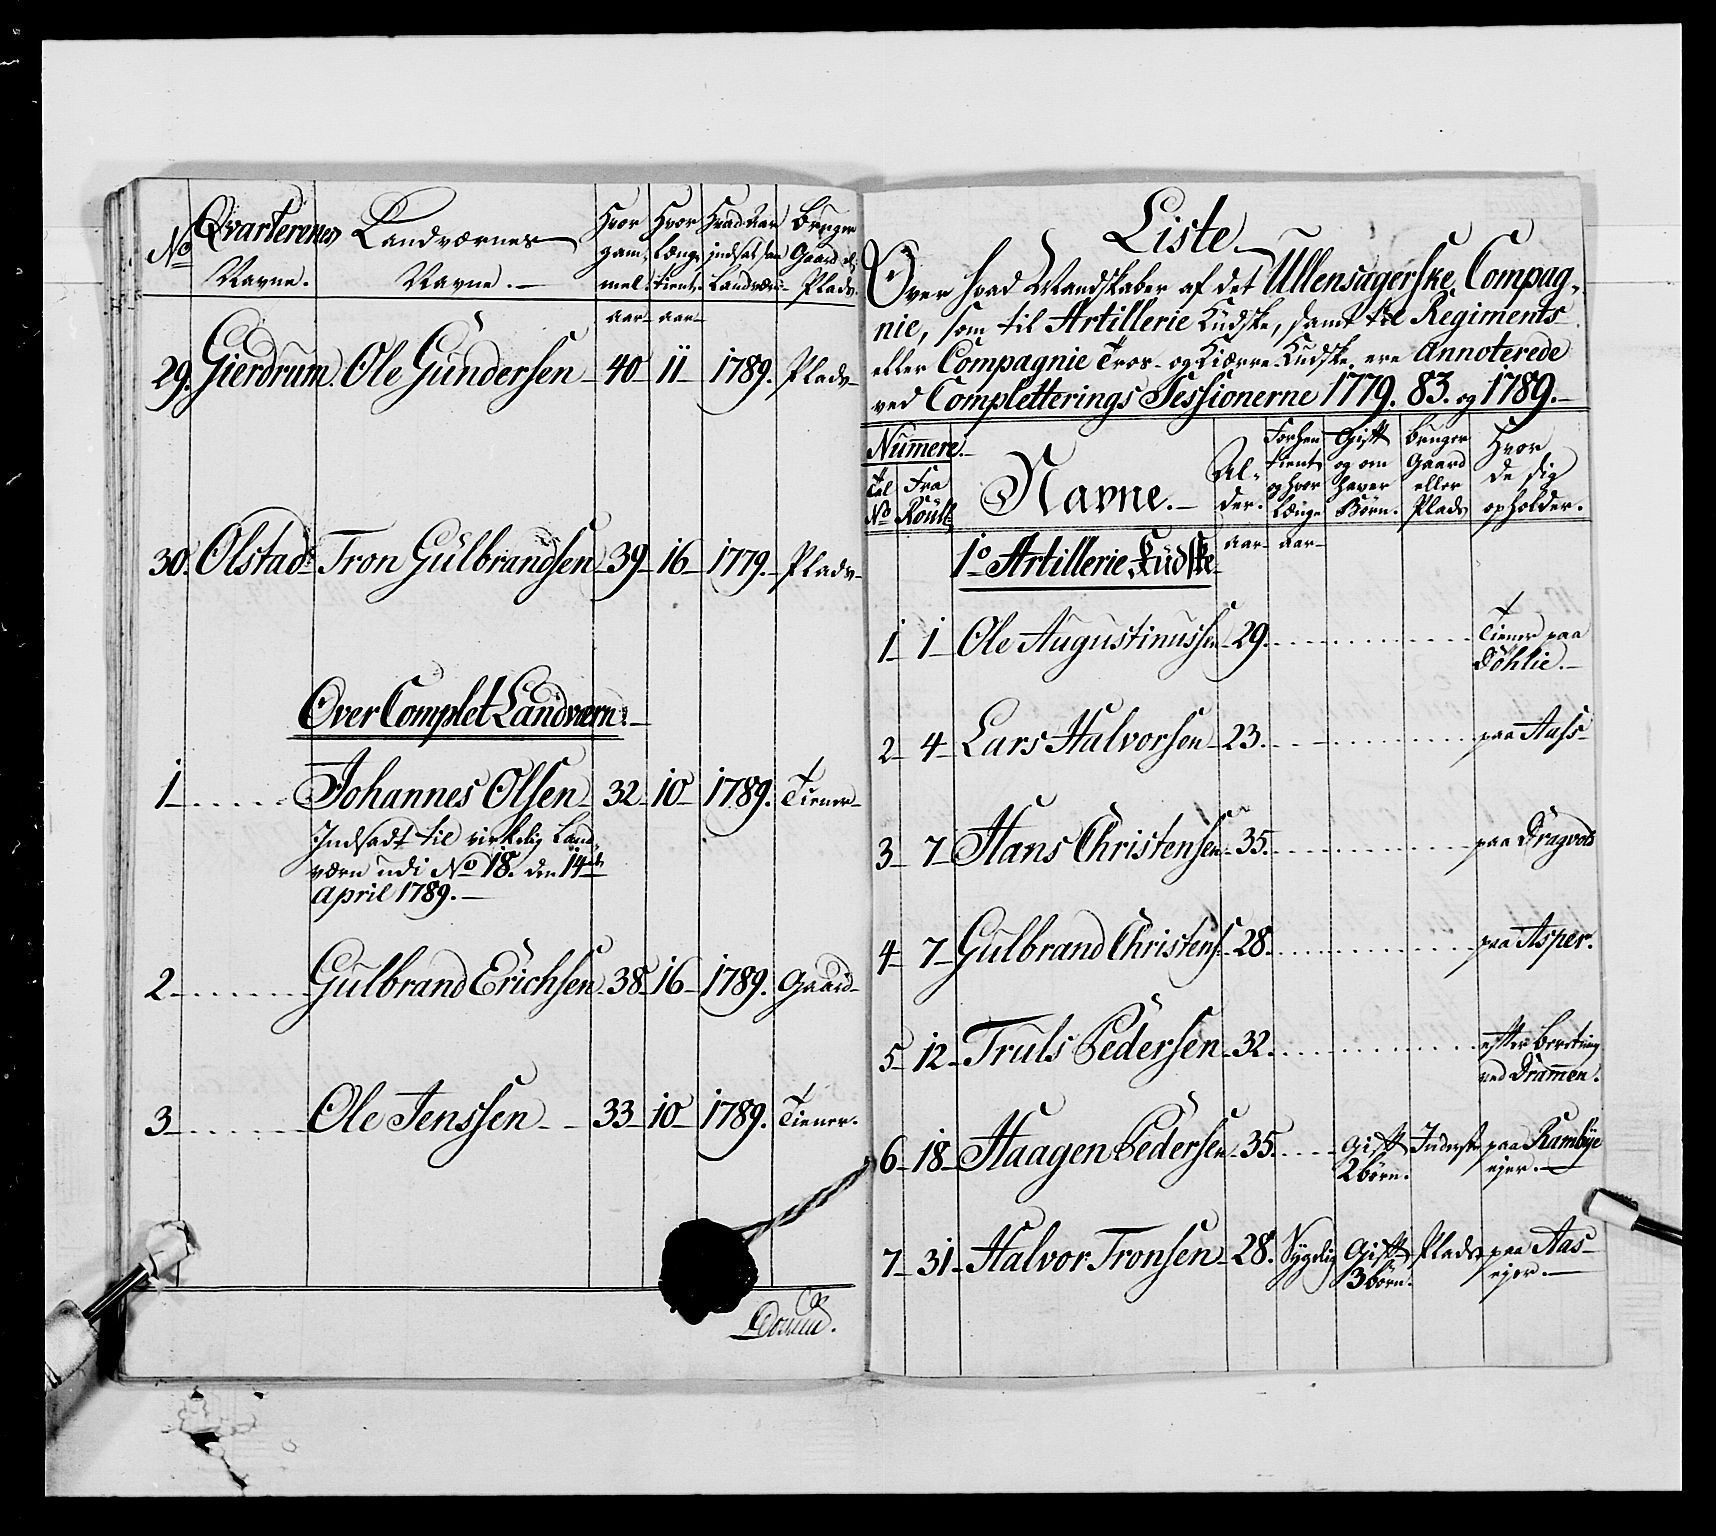 No Qvarterenes Navne. Landværnes Navne. Hvor gammel Hvor længe tient. Hvad Aar indsat som Landværn Bruger Gaard el. Plads.
aar aar
29. Gierdrum. Ole Gundersen 40 11 1789. Plads
30. Olstad Tron Gulbrandsen 39 16 1779. Plads
Over Complet Landværn.
1 Johannes Olsen 32 10 1789. Tiener
Indsadt til virkelig Land-
værn udi No 18. den 14de
April 1789.
2 Gulbrand Erichsen 38 16 1789. Gaard
3 Ole Jenssen 33 10 1789. Tiener.
Liste
Over hvad Mandskaber af det Ullensagerske Compag-
nie, som til Artillerie Kudske, samt til Regiments
eller Compagnie Tros- og Kiærre-Kudske ere Annoterede
ved Completterings Sessionerne 1779. 83. og 1789.
Numere. Til No Fra Roull Navne. Al-der. Forhen tient og hvor længe Gift og om haver Børn. Bruger Gaard eller Plads Hvor de sig opholder.
aar aar
1o Artillerie Kudske
1 1 Ole Augustinussen 29. Tiener paa
Döhlie.
2 4 Lars Halvorsen 23. paa Aass
3 7 Hans Christensen 35. paa Dragvold
4 7 Gulbrand Christens. 28. paa Asper.
5 12 Truls Pedersen 32. efter beretning
ved Dramen.
6 18 Haagen Pedersen 35. Gift Inderste paa Rambye
2 børn. ejer.
7 31 Halvor Tronsen 28. Sygelig Gift Plads paa Aas
3 børn. ejer.